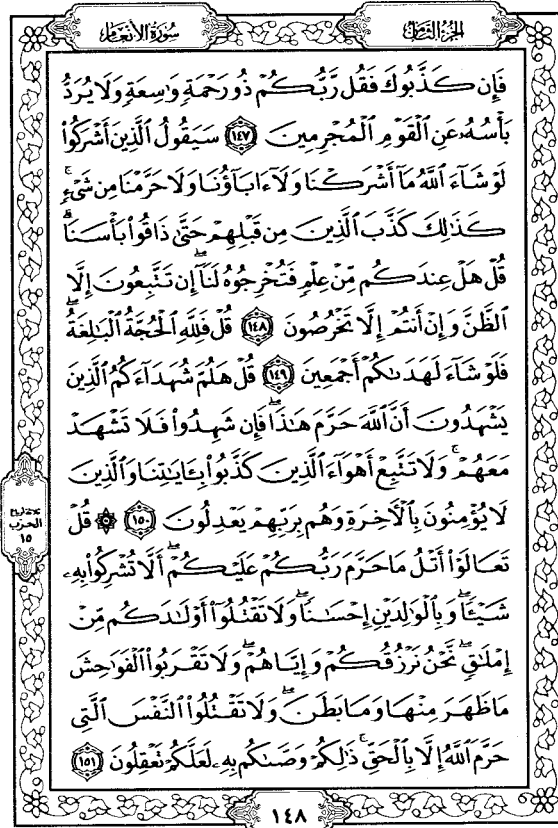 سُورَةُ الأَنْعَامِ
الجُزْءُ الثَّامِنُ
فَإِن كَذَّبُوكَ فَقُل رَّبُّكُمْ ذُو رَحْمَةٍ وَٰسِعَةٍ وَلَا يُرَدُّ
بَأْسُهُۥ عَنِ ٱلْقَوْمِ ٱلْمُجْرِمِينَ ١٤٧ سَيَقُولُ ٱلَّذِينَ أَشْرَكُوا۟
لَوْ شَآءَ ٱللَّهُ مَآ أَشْرَكْنَا وَلَآ ءَابَآؤُنَا وَلَا حَرَّمْنَا مِن شَىْءٍۚ
كَذَٰلِكَ كَذَّبَ ٱلَّذِينَ مِن قَبْلِهِمْ حَتَّىٰ ذَاقُوا۟ بَأْسَنَاۗ
قُلْ هَلْ عِندَكُم مِّنْ عِلْمٍ فَتُخْرِجُوهُ لَنَآۖ إِن تَتَّبِعُونَ إِلَّا
ٱلظَّنَّ وَإِنْ أَنتُمْ إِلَّا تَخْرُصُونَ ١٤٨ قُلْ فَلِلَّهِ ٱلْحُجَّةُ ٱلْبَٰلِغَةُۖ
فَلَوْ شَآءَ لَهَدَىٰكُمْ أَجْمَعِينَ ١٤٩ قُلْ هَلُمَّ شُهَدَآءَكُمُ ٱلَّذِينَ
يَشْهَدُونَ أَنَّ ٱللَّهَ حَرَّمَ هَٰذَاۖ فَإِن شَهِدُوا۟ فَلَا تَشْهَدْ
مَعَهُمْۚ وَلَا تَتَّبِعْ أَهْوَآءَ ٱلَّذِينَ كَذَّبُوا۟ بِـَٔايَٰتِنَا وَٱلَّذِينَ
لَا يُؤْمِنُونَ بِٱلْـَٔاخِرَةِ وَهُم بِرَبِّهِمْ يَعْدِلُونَ ١٥٠ ۞ قُلْ
تَعَالَوْا۟ أَتْلُ مَا حَرَّمَ رَبُّكُمْ عَلَيْكُمْۖ أَلَّا تُشْرِكُوا۟ بِهِۦ
شَيْـًٔاۖ وَبِٱلْوَٰلِدَيْنِ إِحْسَٰنًاۖ وَلَا تَقْتُلُوٓا۟ أَوْلَٰدَكُم مِّنْ
إِمْلَٰقٍۖ نَّحْنُ نَرْزُقُكُمْ وَإِيَّاهُمْۖ وَلَا تَقْرَبُوا۟ ٱلْفَوَٰحِشَ
مَا ظَهَرَ مِنْهَا وَمَا بَطَنَۖ وَلَا تَقْتُلُوا۟ ٱلنَّفْسَ ٱلَّتِى
حَرَّمَ ٱللَّهُ إِلَّا بِٱلْحَقِّۚ ذَٰلِكُمْ وَصَّىٰكُم بِهِۦ لَعَلَّكُمْ تَعْقِلُونَ ١٥١
الحزب
١٥
١٤٨